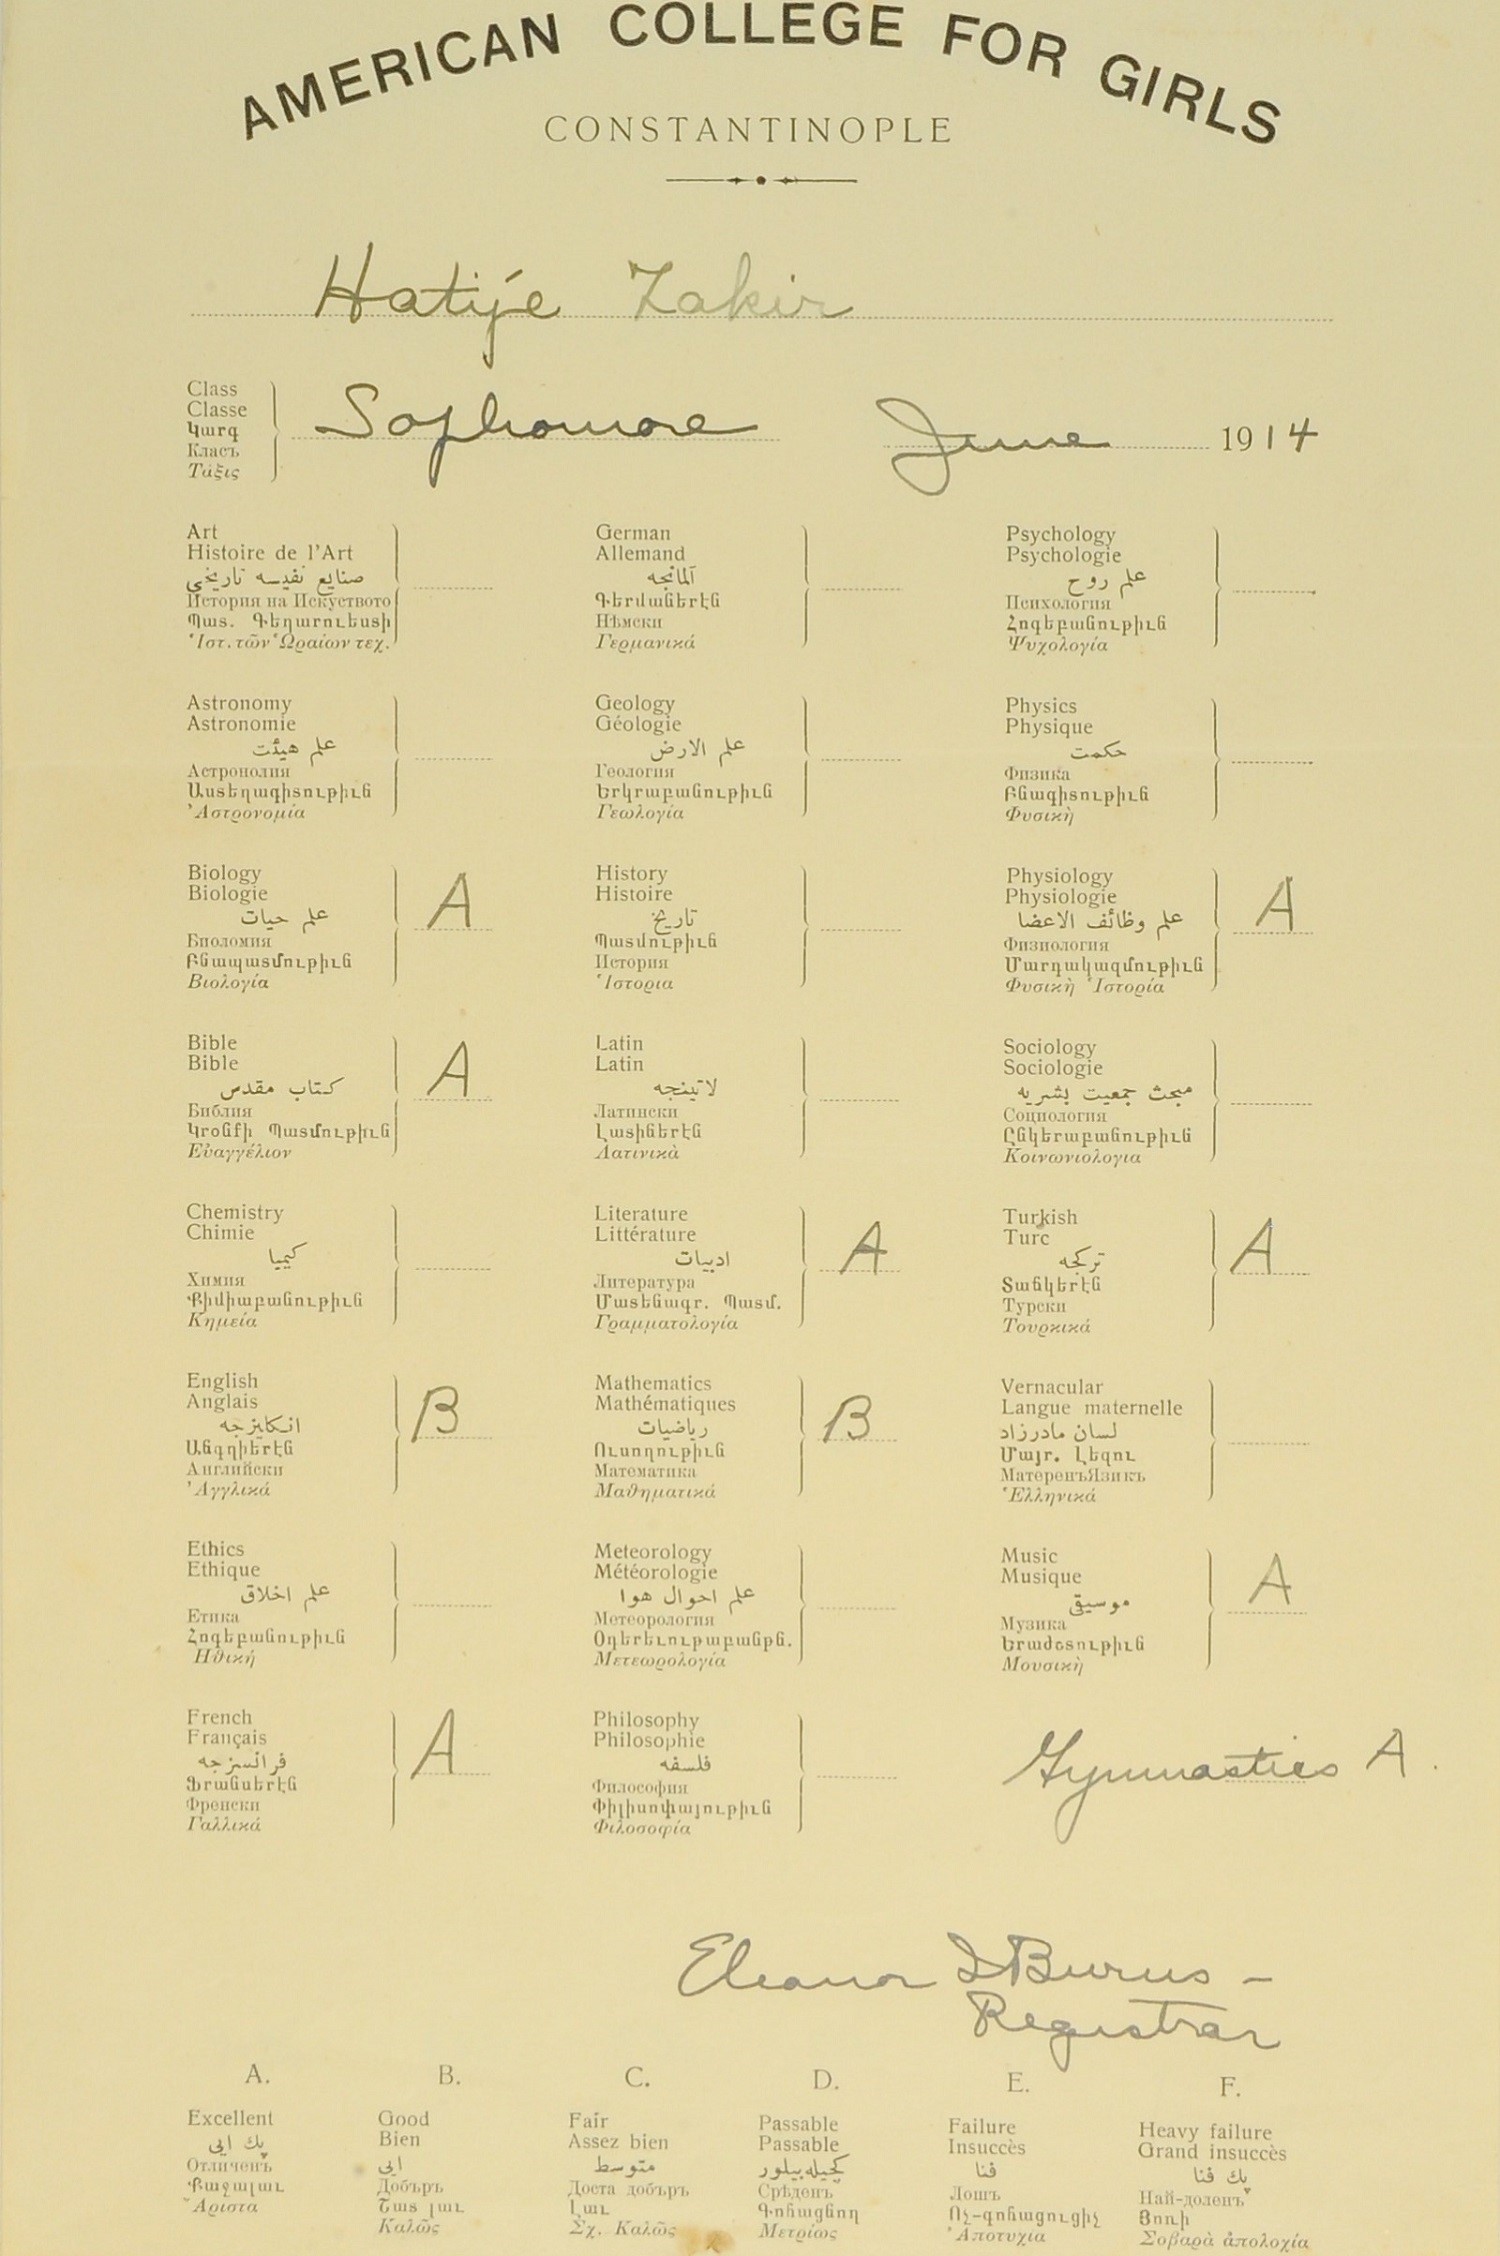 AMERICAN COLLEGE FOR GIRLS
CONSTANTINOPLE
Hatije Zakir
Class
Classe
Կարգ
Класъ
Τάξις
Sophomore June 1914
Art
Histoire de l'Art
صنايع نفيسه تاريخى
История на Искуството
Պատ. Գեղարուեստի
Ἱστ. τῶν Ὡραίων τεχ.
German
Allemand
آلمانجه
Գերմաներէն
Нѣмски
Γερμανικά
Psychology
Psychologie
علم روح
Психология
Հոգեբանութիւն
Ψυχολογία
Astronomy
Astronomie
علم هيئت
Астронолия
Աստեղագիտութիւն
Ἀστρονομία
Geology
Géologie
علم الارض
Геология
Երկրաբանութիւն
Γεωλογία
Physics
Physique
حكمت
Физика
Բնագիտութիւն
Φυσικὴ
Biology
Biologie
علم حيات
Биоломия
Բնապատմութիւն
Βιολογία
A
History
Histoire
تاريخ
Պատմութիւն
История
Ἱστορια
Physiology
Physiologie
علم وظائف الاعضا
Физиология
Մարդակազմութիւն
Φυσικὴ Ἱστορία
A
Bible
Bible
كتاب مقدس
Библия
Կրօնքի Պատմութիւն
Εὐαγγέλιον
A
Latin
Latin
لاتينجه
Латински
Լատիներէն
Λατινικὰ
Sociology
Sociologie
مبحث جمعيت بشريه
Социология
Ընկերաբանութիւն
Κοινωνιολογια
Chemistry
Chimie
كيميا
Химия
Քիմիաբանութիւն
Κημεία
Literature
Littérature
ادبيات
Литература
Մատենագր. Պատմ.
Γραμματολογία
A
Turkish
Turc
تركجه
Տաճկերէն
Турски
Τουρκικά
A
English
Anglais
انكليزجه
Անգղիերէն
Английски
Ἀγγλικά
B
Mathematics
Mathématiques
رياضيات
Ուսողութիւն
Математика
Μαθηματικά
B
Vernacular
Langue maternelle
لسان مادرزاد
Մայր. Լեզու
МатеренъЯзикъ
Ἑλληνικά
Ethics
Ethique
علم اخلاق
Етика
Հոգեբանութիւն
Ηθική
Meteorology
Météorologie
علم احوال هوا
Метеорология
Օդերեւութաբանըն.
Μετεωρολογία
Music
Musique
موسيقى
Музика
Երաժշտութիւն
Μουσικὴ
A
French
Français
فرانسزجه
Ֆրանսերէն
Френски
Γαλλικά
A
Philosophy
Philosophie
فلسفه
Философия
Փիլիսոփայութիւն
Φιλοσοφία
Gymnastics A.
Eleanor I Burns –
Registrar
A. B. C. D. E. F.
Excellent
پك ايى
Отличенъ
Քաջալաւ
Ἄριστα
Good
Bien
ايى
Добъръ
Շատ լաւ
Καλῶς
Fair
Assez bien
متوسط
Доста добъръ
Լաւ
Σχ. Καλῶς
Passable
Passable
Срѣденъ
Գոհացնող
Μετρίως
Failure
Insuccès
فنا
Лошъ
Ոչ-գոհացուցիչ
Ἀποτυχία
Heavy failure
Grand insuccès
پك فنا
Най-доленъ
Յոռի
Σοβαρὰ ἀπολοχία